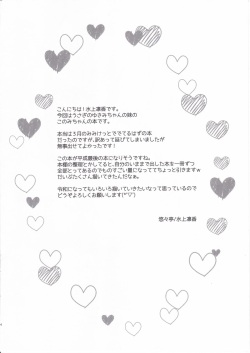 こんにちは！水上凛香です。
今回はうさぎのゆきみちゃんの妹の
このみちゃんの本です。
本当は5月のみみけっとででてるはずの本
だったのですが、訳あって延びてしまいましたが
無事出せてよかったです！
この本が平成最後の本になりそうですね。
本棚の整理とかしてると、自分のいままで出した本を一冊ずつ
全部とってあるのでものすごい量になっててちょっと引きますw
だいぶたくさん描いてきたんだなぁ。
令和になってもいろいろ描いていきたいなって思っているので
どうぞよろしくお願いします(*'▽')
悠々亭/水上凛香